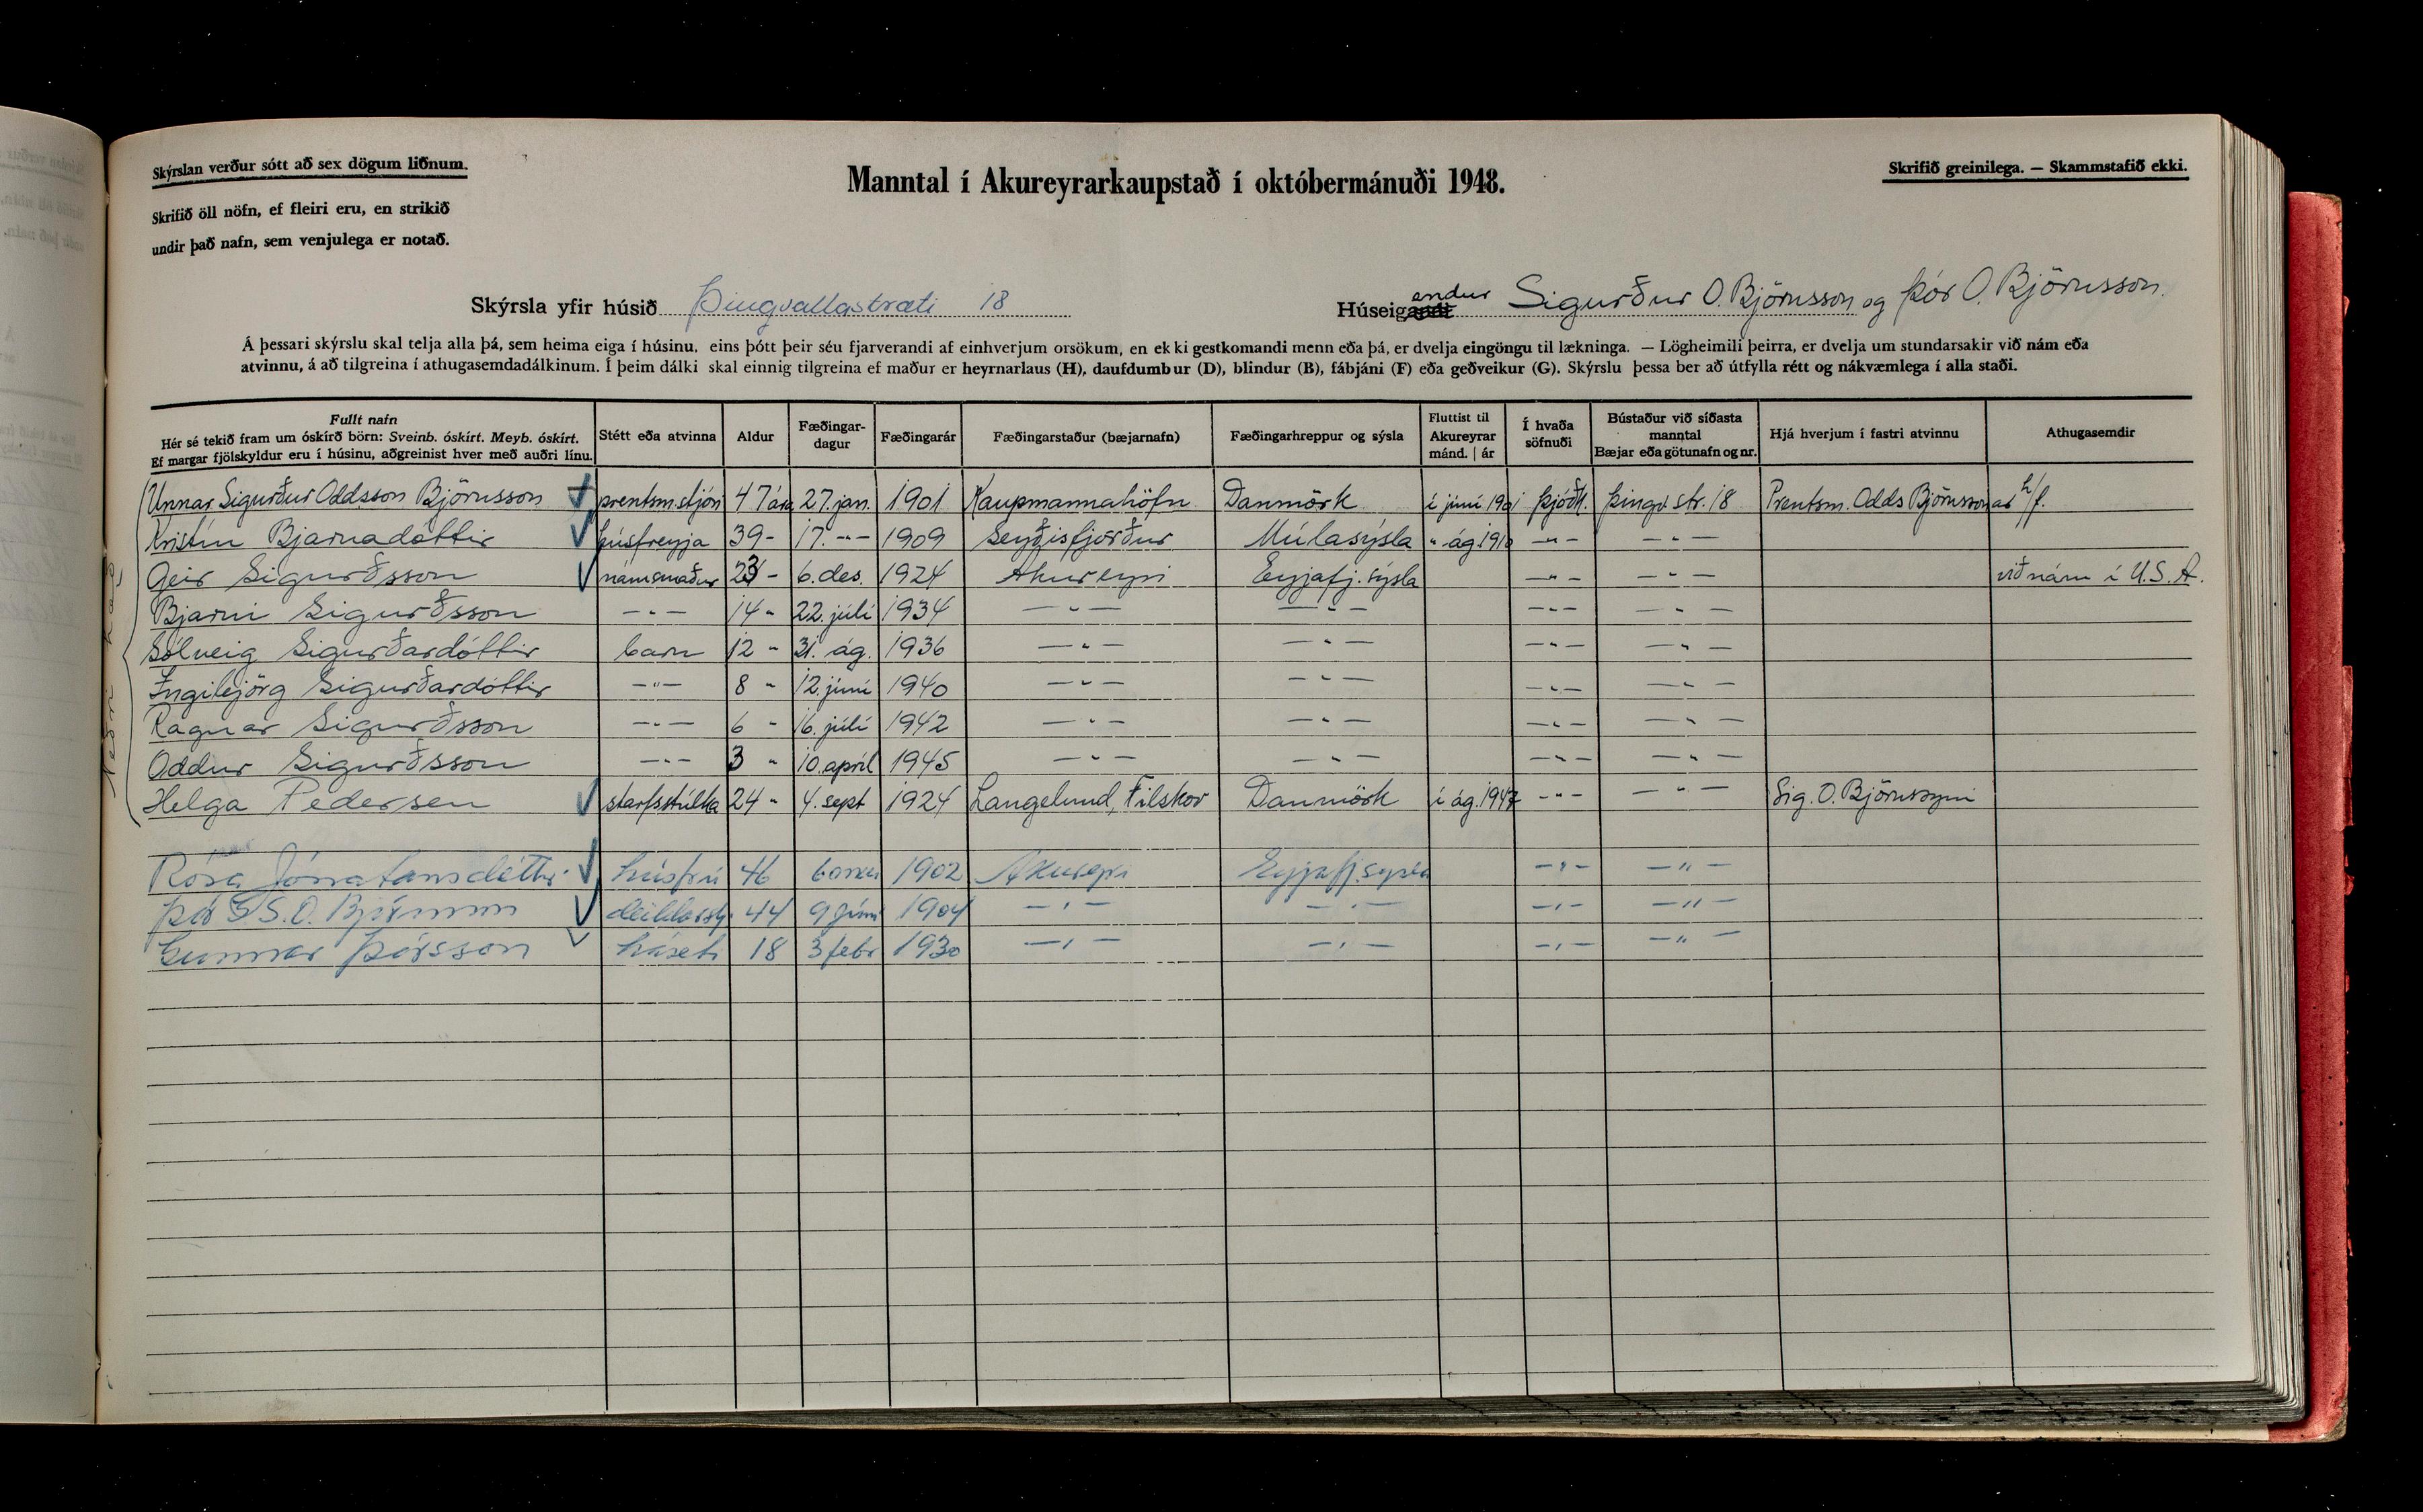 Skýrslan verður sótt að sex dögum liðnum.
Skrifið öll nöfn, ef fleiri eru, en strikið
undir það nafn, sem venjulega er notað.
Manntal í Akureyrarkaupstað í októbermánuði 1948.
Skrifið greinilega. — Skammstafið ekki.
Skýrsla yfir húsið Þingvallastræti 18
Húseigendur Sigurður O. Björnsson og Þór O. Björnsson.
Á þessari skýrslu skal telja alla þá, sem heima eiga í húsinu, eins þótt þeir séu fjarverandi af einhverjum orsökum, en ekki gestkomandi menn eða þá, er dvelja eingöngu til lækninga. — Lögheimili þeirra, er dvelja um stundarsakir við nám eða
atvinnu, á að tilgreina í athugasemdadálkinum. Í þeim dálki skal einnig tilgreina ef maður er heyrnarlaus (H), daufdumbur (D), blindur (B), fábjáni (F) eða geðveikur (G). Skýrslu þessa ber að útfylla rétt og nákvæmlega í alla staði.
Fullt nafn
Hér sé tekið fram um óskírð börn: Sveinb. óskírt. Meyb. óskírt.
Ef margar fjölskyldur eru í húsinu, aðgreinist hver með auðri línu.
Stétt eða atvinna
Aldur
Fæðingar-
dagur
Fæðingarár
Fæðingarstaður (bæjarnafn)
Fæðingarhreppur og sýsla
Fluttist til
Akureyrar
mánd. | ár
Í hvaða
söfnuði
Bústaður við síðasta
manntal
Bæjar eða götunafn og nr.
Hjá hverjum í fastri atvinnu
Athugasemdir
Unnar Sigurður Oddsson Björnsson prentsm.stjóri 47 ára 27. jan. 1901 Kaupmannahöfn Danmörk í júní 1901 þjóðk. Þingv.str. 18 Prentsm. Odds Björnssonar h/f.
Kristín Bjarnadóttir húsfreyja 39 - 17. -"- 1909 Seyðisfjörður Múlasýsla " ág. 1910 -"- -"-
Geir Sigurðsson námsmaður 23 - 6. des. 1924 Akureyri Eyjafj.sýsla -"- -"- við nám í U.S.A.
Bjarni Sigurðsson -"- 14 - 22. júlí 1934 -"- -"- -"- -"-
Sólveig Sigurðardóttir barn 12 - 31. ág. 1936 -"- -"- -"- -"-
Ingibjörg Sigurðardóttir -"- 8 - 12. júní 1940 -"- -"- -"- -"-
Ragnar Sigurðsson -"- 6 - 16. júlí 1942 -"- -"- -"- -"-
Oddur Sigurðsson -"- 3 - 10. apríl 1945 -"- -"- -"- -"-
Helga Pedersen starfsstúlka 24 - 4. sept 1924 Langelund, Filskov Danmörk í ág. 1947 -"- -"- Sig. O. Björnssyni
Neðri hæð
Rósa Jónatansdóttir húsfrú 46 6 1902 Akureyri Eyjafj.sýsla -"- -"-
Þór S.O. Björnsson 44 9 júní 1904 -"- -"- -"- -"-
Gunnar Þórsson háseti 18 3 febr 1930 -"- -"- -"- -"-